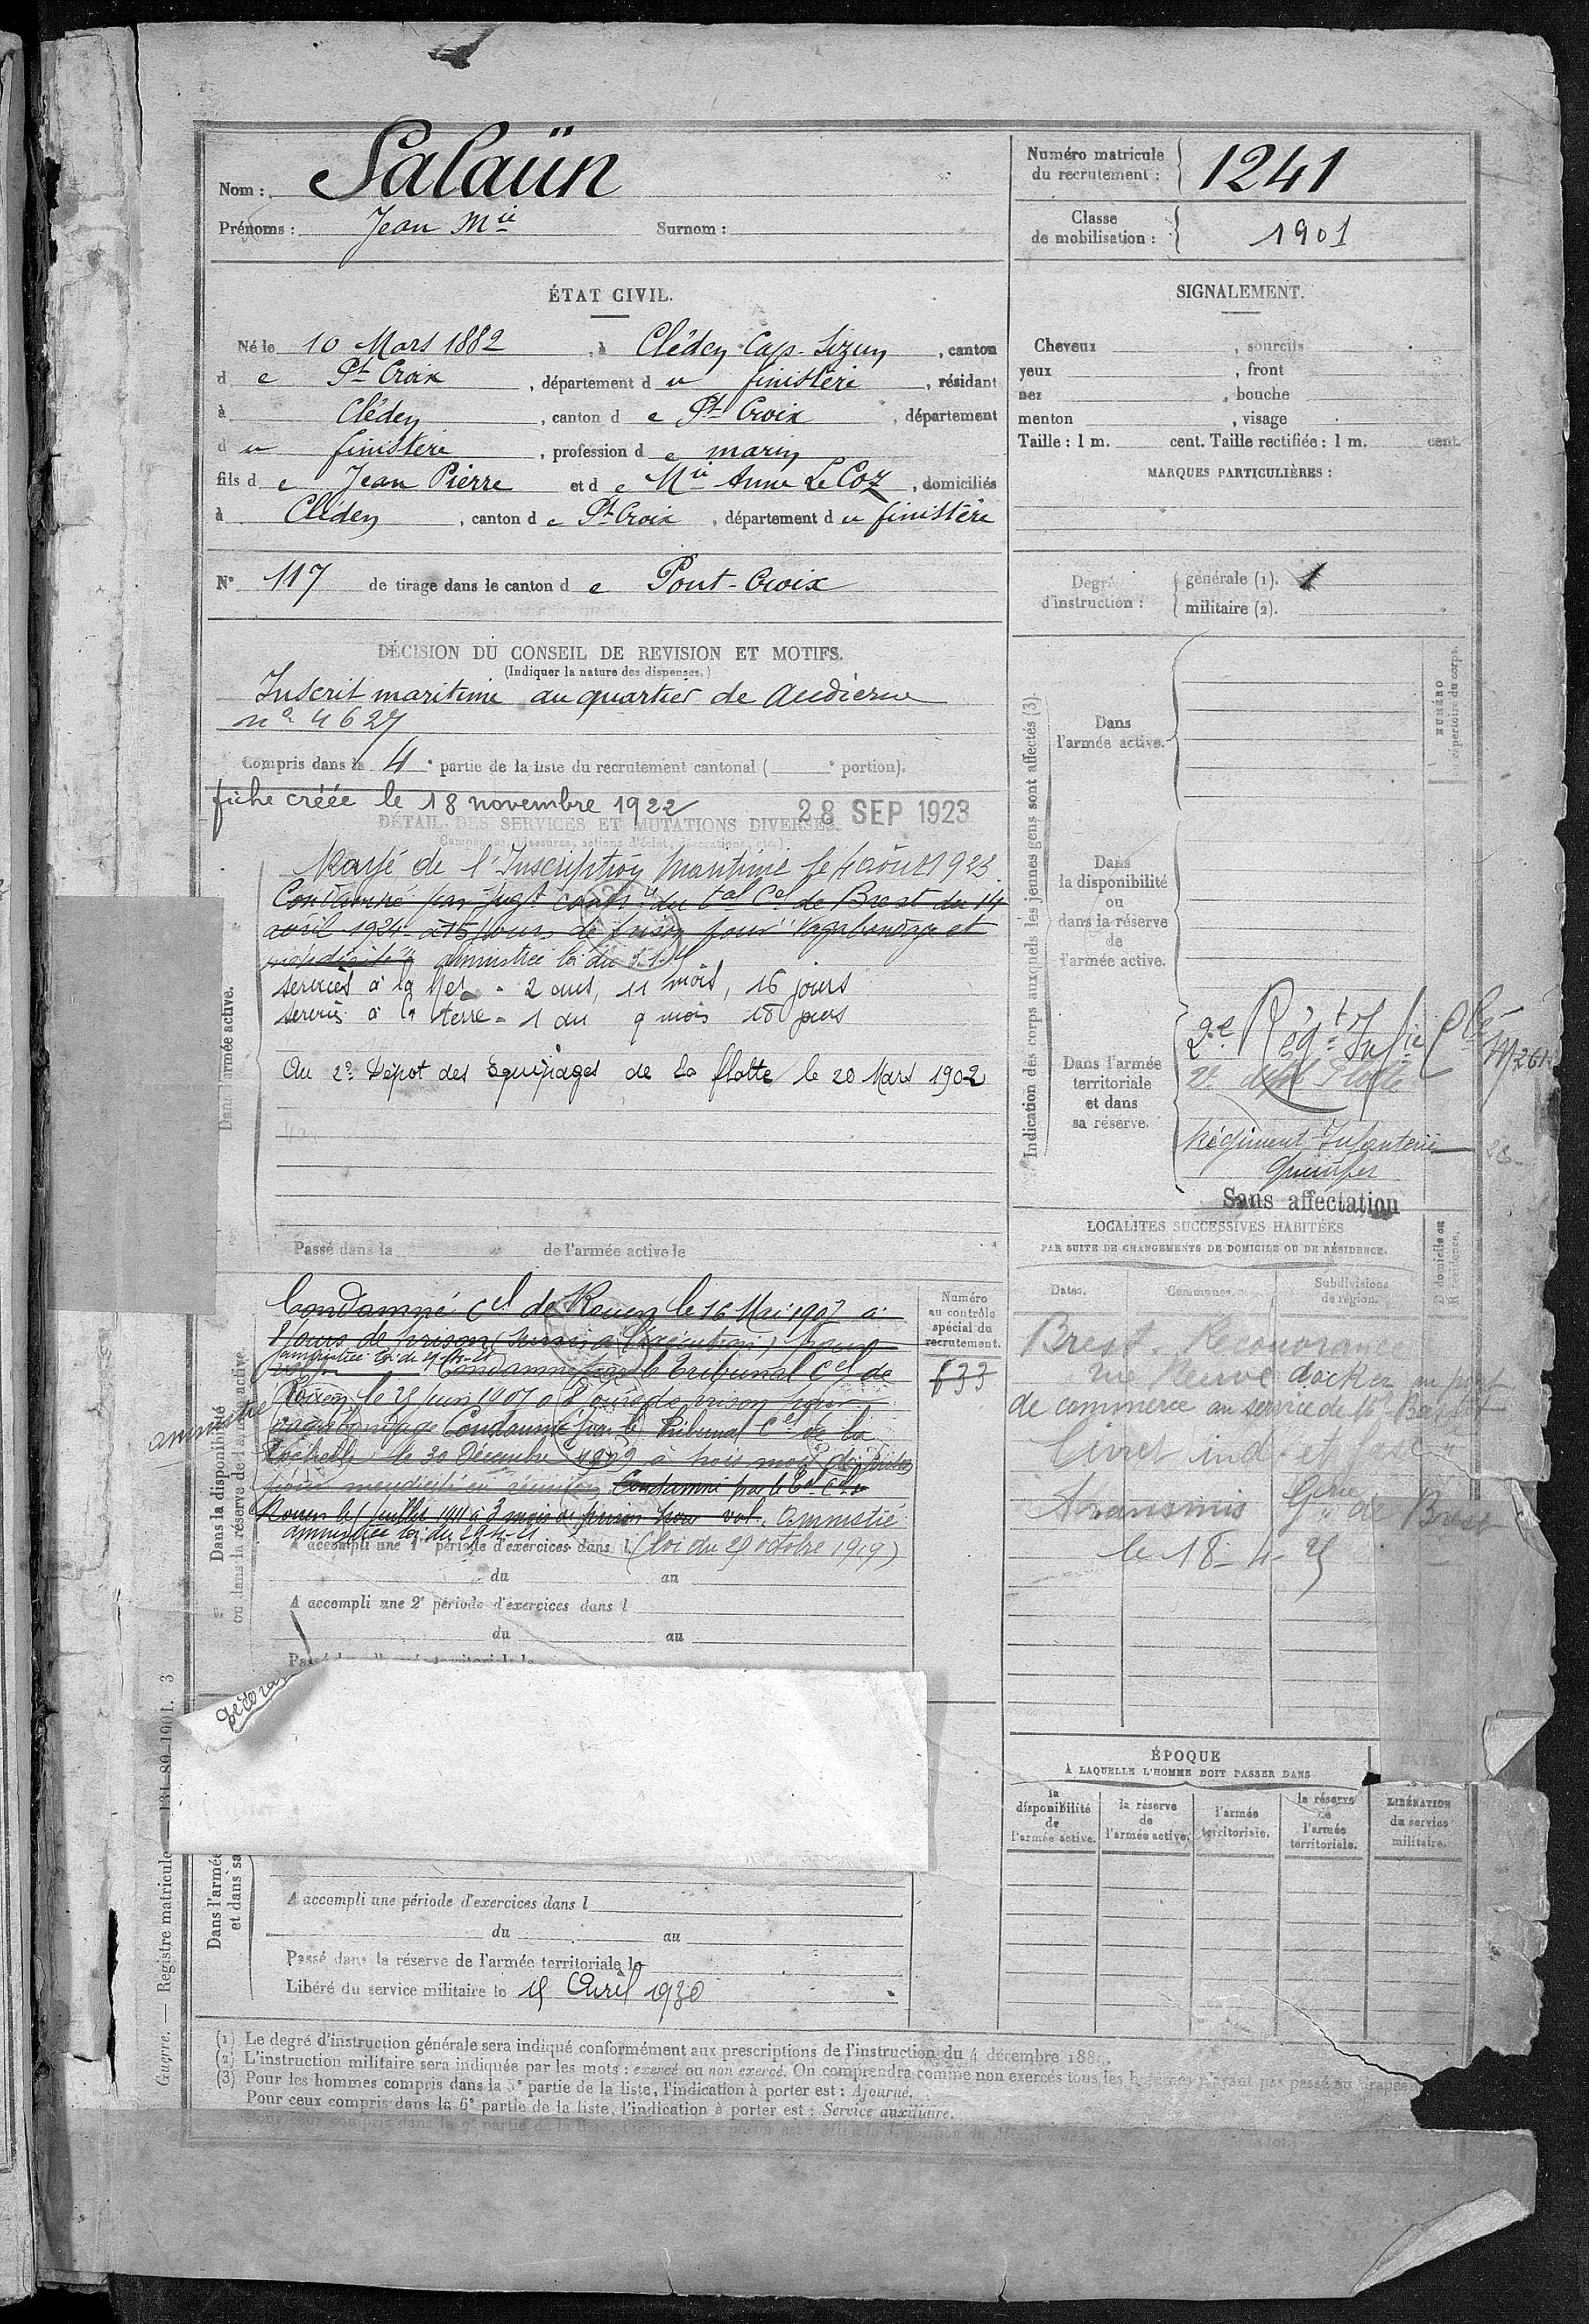 Nom : Salaün
Prénoms : Jean Mie Surnom :
Numéro matricule du recrutement : 1241
Classe de mobilisation : 1901
ÉTAT CIVIL.
Né le 10 Mars 1882, à Cléden Cap-Sizun, canton
de Pt Croix, département du finistère, résidant
à Cléden, canton de Pt Croix, département
du finistère, profession de marin
fils de Jean Pierre et de Mie Anne Le Coz, domiciliés
à Cléden, canton de Pt Croix, département du finistère
N° 117 de tirage dans le canton de Pont-Croix
DÉCISION DU CONSEIL DE REVISION ET MOTIFS.
(Indiquer la nature des dispenses.)
Inscrit maritime au quartier de Audierne
n° 4627
Compris dans la 4e partie de la liste du recrutement cantonal ( e portion).
fiche créée le 18 novembre 1922
28 SEP 1923
DÉTAIL DES SERVICES ET MUTATIONS DIVERSES.
Rayé de l'Inscription Maritime le 4 août 1923.
Condamné par Jugt contre du tal Cel de Brest du 14
avril 1924 à 15 jours de prison pour "Vagabondage et
mendicité" amnistiée loi du
services à la Mer = 2 ans, 11 mois, 16 jours
services à la terre = 1 an 9 mois 18 jours
Au 2e Dépot des Equipages de la flotte le 20 Mars 1902
Dans l'armée active.
Passé dans la de l'armée active le
Condamné Cel de Rouen le 16 Mai 1907 à
8 jours de prison (sursis à l'exécution) pour
amnistiée loi du 29-4-21
vol Condamné par le Tribunal Cel de
Rouen le 25 Juin 1907 à 8 jours de prison pour
amnistié
vagabondage Condamné par le Tribunal Cel de la
Rochelle, le 30 Décembre 1909 à trois mois de prison
pour mendicité en réunion. Condamné par le Tal Cel de
Rouen le 1 Juillet 1911 à 3 mois de prison pour vol. Amnistié
amnistiée loi du 29-4-21
(loi du 24 octobre 1919)
Numéro au contrôle spécial du recrutement.
633
Dans la disponibilité ou dans la réserve de l'armée active.
A accompli une 1re période d'exercices dans l
du au
A accompli une 2e période d'exercices dans l
du au
Dans l'armée
et dans sa
A accompli une période d'exercices dans l
du au
Passé dans la réserve de l'armée territoriale le
Libéré du service militaire le 15 Avril 1930
SIGNALEMENT.
Cheveux , sourcils
yeux , front
nez , bouche
menton , visage
Taille : 1 m. cent. Taille rectifiée : 1 m. cent.
MARQUES PARTICULIÈRES :
Degré d'instruction : générale (1). 1
militaire (2).
Indication des corps auxquels les jeunes gens sont affectés (3).
NUMÉRO
répertoire du corps.
Dans l'armée active.
Dans la disponibilité ou dans la réserve de l'armée active.
Dans l'armée territoriale et dans sa réserve.
2e Régt Infie Cle
Régiment Infanterie
Quimper
Sans affectation
LOCALITÉS SUCCESSIVES HABITÉES
PAR SUITE DE CHANGEMENTS DE DOMICILE OU DE RÉSIDENCE.
Dates. Communes. Subdivisions de région. Domicile ou Résidence.
Brest Recouvrance
rue neuve docker au port
de commerce au service de
livret ind. et fasc.
Transmis Gerie de Brest
le 18-4-25
ÉPOQUE
À LAQUELLE L'HOMME DOIT PASSER DANS
la disponibilité de l'armée active.
la réserve de l'armée active.
l'armée territoriale.
la réserve de l'armée territoriale.
DATE
LIBÉRATION du service militaire.
Guerre. — Registre matricule 131-89-1901. 3
(1) Le degré d'instruction générale sera indiqué conformément aux prescriptions de l'instruction du 4 décembre
(2) L'instruction militaire sera indiquée par les mots : exercé ou non exercé. On comprendra comme non exercés tous les hommes n'ayant pas passé au drapeau
(3) Pour les hommes compris dans la 5e partie de la liste, l'indication à porter est : Ajourné.
Pour ceux compris dans la 6e partie de la liste, l'indication à porter est : Service auxiliaire.